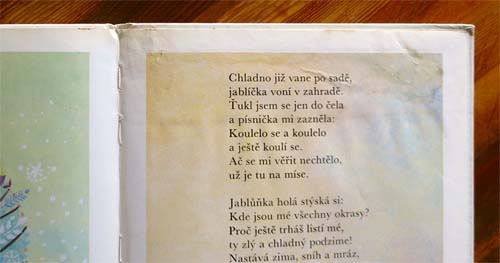 Chladno již vane po sadě,
jablíčka voní v zahradě.
Ťukl jsem se jen do čela
a písnička mi zazněla:
Koulelo se a koulelo
a ještě koulí se.
Ač se mi věřit nechtělo,
už je tu na míse.
Jablůňka holá stýská si:
Kde jsou mé všechny okrasy?
Proč ještě trháš listí mé,
ty zlý a chladný podzime!
Nastává zima, sníh a mráz,